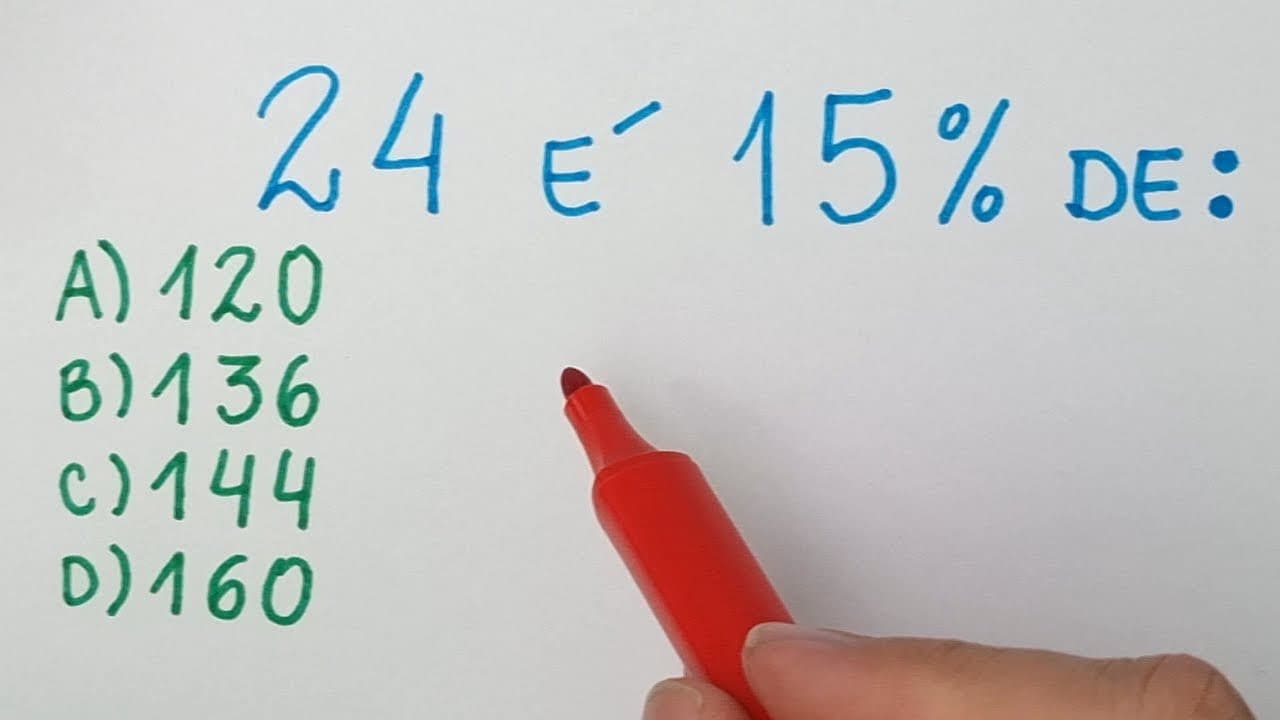 24 É 15% DE:
A) 120
B) 136
C) 144
D) 160